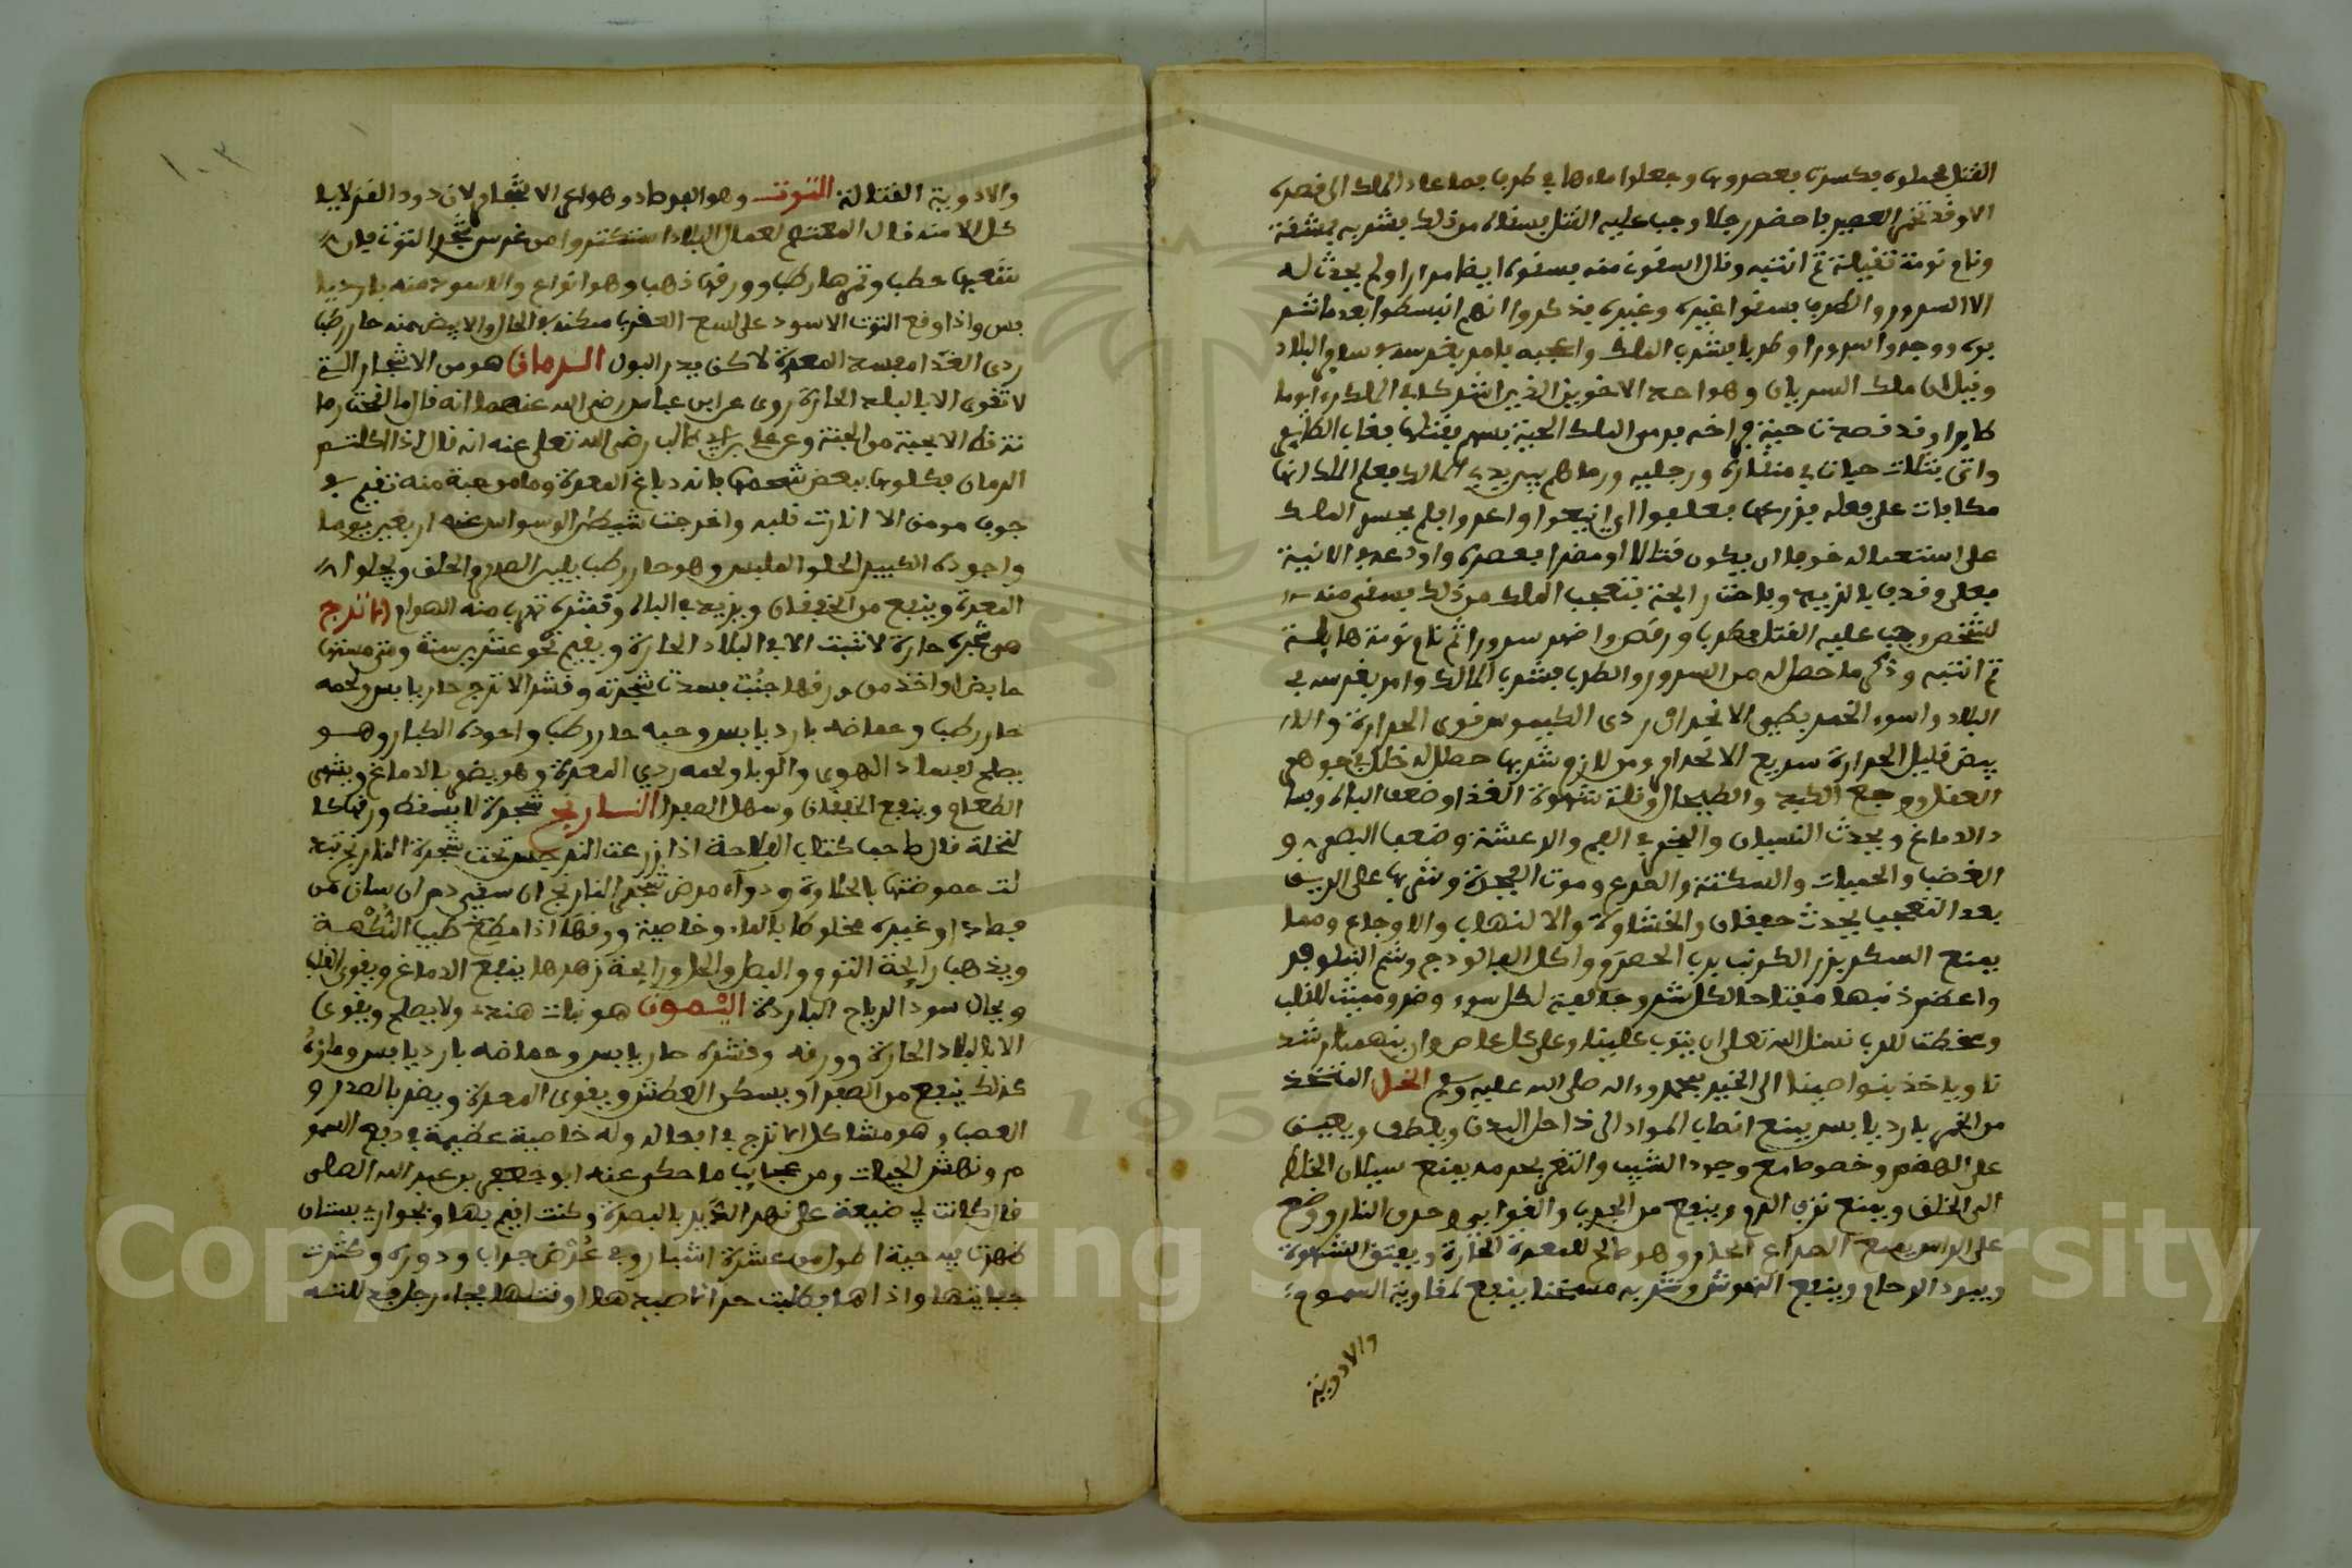 القتل فحملوه فكسرت بعصروها وجعلوا ماءها في ظرف فلما عاد الملك الى قصره
الا وقد تخمر العصير فاحضر رجلا وجب عليه القتل فسقاه من ذلك فشربه بمشقة
ونام نومة ثقيلة ثم انتبه وقال اسقوني منه فسقوه ايضا مرارا ولم يحدث له
الا السرور والطرب فسقوا غيره وغيره فذكروا انهم انبسطوا بعد ما شر
بوه ووجدوا سرورا وطربا فشرب الملك واعجبه فامر بغرسه في ساير البلاد
وقيل ان ملك السريان وهو احد الاخوين الذين اشتركا في الملك راى يوما
طايرا وقد قصدت حية فراخه فرمى الملك الحية بسهم فقتلها فغاب الطاير
واتى بثلاث حبات في منقاره ورجليه ورماهم بين يدي الملك فعلم الملك انها
مكافات على فعله فزرعها فعلقوا الى اينعوا واعروا فلم يجسر الملك
على استعماله خوفا ان يكون قتالا او مضرا فعصره واودعه في الانية
فغلى وقذف بالزبد وفاحت رايحة فتعجب الملك من ذلك فسقى منه
لشخص وجب عليه القتل فطرب ورقص واظهر سرورا ثم نام نومة هايلة
ثم انتبه وذكر ما حصل له من السرور والطرب فشرب الملك وامر بغرسه في
البلاد واسود الخمر بطيى الانحدار ردى الكيموس قوى الحرارة والا
بيض قليل الحرارة سريع الانحدار ومن لازم شربها حصل له خلل في جوهر
العقل ووجع الكبد والطحال وقلة شهوة الغذا وضعف الباه وفسا
د الدماغ ويحدث النسيان والبخر في الفم والرعشة وضعف البصر و
الغضب والحميات والسكتة والصرع وموت الفجأة وشربها على الريق
بعد التعب يحدث خفقان والغشاوة والالتهاب والاوجاع ومما
يمنع السكر بزر الكرنب برب الحصرم واكل الفالوذج وشم النيلوفر
واعظم ذنبها مفتاحا لكل شر وجالبة لكل سوء وضر ومميت للقلب
ومسخطت للرب نسئل الله تعلى ان يتوب علينا وعلى كل عاص وان يلهمنا رشد
نا وياخذ بنواصينا الى الخير بمحمد وءاله صلى الله عليه وسلم الخل المتخذ
من الخمر بارد يابس يمنع انصاب المواد الى داخل البدن ويلطف ويعين
على الهضم وخصوصا مع وجود الشيب والتغرغر به يمنع سيلان الخلط
الى الحلق ويمنع نزف الدم وينفع من الجرب والقوابي وحرق النار ووضع
على الراس يمنع الصداع الحار وهو صالح للمعدة الحارة ويفتق الشهوة
ويبرد الارحام وينفع النهوش وشربه مسخنا ينفع لمقاومة السموم
والادوية
والادوية القتالة التوت وهو الفرصاد وهو اعز الاشجار لان دود القز لايا
كل الا منه قال المعتصم لعمال البلاد استكثروا من غرس شجر التوت فان
شعبها حطب وثمرها رطب وورقها ذهب وهو انواع والاسود منه بارد يا
بس واذا وضع التوت الاسود على لسع العقرب سكنه في الحال والابيض منه حار رطب
ردى الغذا مفسد المعدة لاكن يدر البول الرمان هو من الاشجار التي
لا تقوى الا بالبلد الحارة روى عن ابن عباس رضي الله عنهما انه قال ما لقحت رما
نة قط الا بحبة من الجنة وعن علي بن ابي طالب رضي الله تعلى عنه انه قال اذا اكلتم
الرمان فكلوها ببعض شحمها فانه دباغ المعدة وما من حبة منه تقيم في
جوف مومن الا انارت قلبه واخرجت شيطن الوسواس عنه اربعين يوما
واجوده الكبير الحلو المليس وهو حار رطب يلين الصدر والحلق ويجلوا
المعدة وينفع من الخفقان ويزيد في الباه وقشره تهرب منه الهوام الاترج
هو شجره حارة لا تنبت الا في البلاد الحارة ويقيم نحو عشرين سنة ومتى مستها
حايض او اخذ من ورقها جنب فسدت شجرته وقشر الاترج حار يابس ولحمه
حار رطب وحماضه بارد يابس وحبه حار رطب واجوده الكبار وهو
يصلح لفساد الهوى والوبا ولحمه ردي المعدة وهو يضر بالدماغ ويشهى
الطعام وينفع الخفقان وسهل الصفرا النارنج شجرة لا يسقط ورقها كا
لنخلة قال صاحب كتاب الفلاحة اذا زرعت النرجس تحت شجرة النارنج تبد
لت حموضتها بالحلاوة ودواء مرض شجر النارنج ان سقي دم انسان من
فصاد او غيره مخلوطا بالماء وخاصية ورقها اذا مضغ طيب النكهة
ويذهب رايحة الثوم والبصل والخل ورايحة زهرها ينفع الدماغ ويقوى القلب
ويحلل سود الرياح الباردة اليمون هو نبات هندى ولا يصلح ويقوى
الا بالبلاد الحارة وورقه وقشره حار يابس وحماضه بارد يابس وماؤه
كذلك ينفع من الصفرا ويسكن العطش ويقوى المعدة ويضر بالصدر و
العصب وهو مشاكل الاترج في افعاله وله خاصية عظيمة في دفع السمو
م ونهش الحيات ومن عجايب ما حكى عنه ابو جعفر بن عبد الله الصلى
قال كانت لي ضيعة على نهر الدير بالبصرة وكنت اقيم بها وبجوارى بستان
ظهرت فيه حية اطول من عشرة اشبار وفي عرض جراب ودوره وكثرت
جنايتها واذاها فطلبت حرا ما صيدها او قتلها فجاء رجل